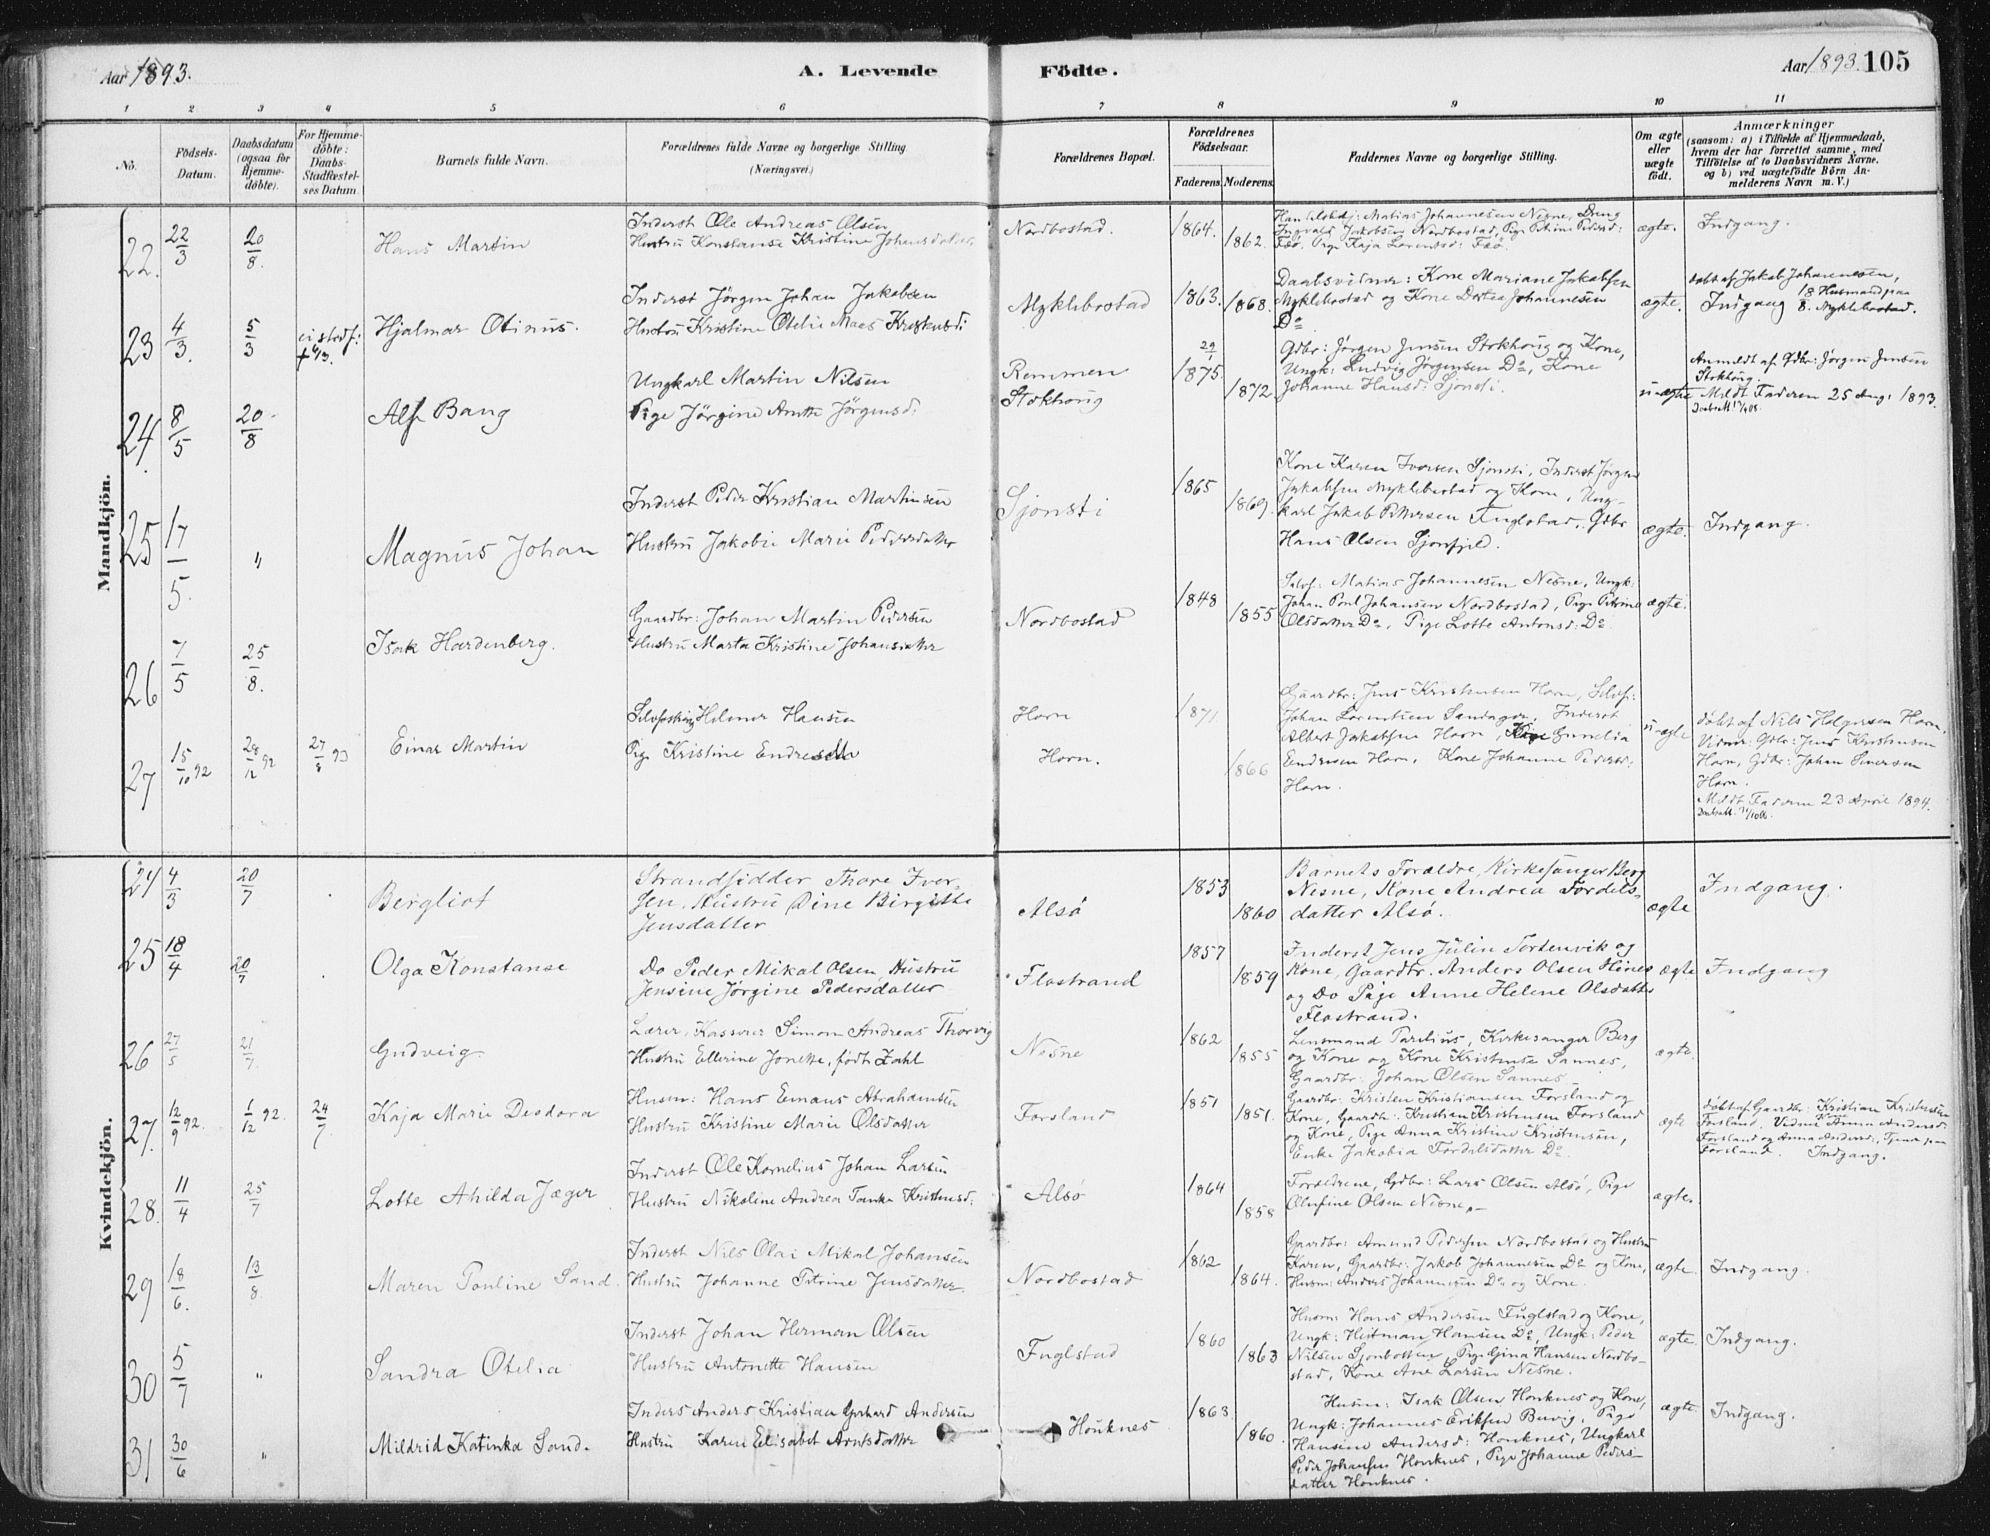 Aar 1893.
A. Levende
Födte.
Aar 1893. 105
1 2 3 4 5 6 7 8 9 10 11
No.
Födsels-
Datum.
Daabsdatum
(ogsaa for
Hjemme-
döbte).
For Hjemme-
döbte:
Daabs-
Stadfæstel-
ses Datum.
Barnets fulde Navn.
Forældrenes fulde Navne og borgerlige Stilling
(Næringsvei.)
Forældrenes Bopæl.
Forældrenes
Födselsaar.
Faderens. Moderens.
Faddernes Navne og borgerlige Stilling.
Om ægte
eller
uægte
födt.
Anmærkninger
(saasom: a) i Tilfælde af Hjemmedaab,
hvem der har forrettet samme, med
Tilföielse af to Daabsvidners Navne.
og b) ved uægtefödte Börn An-
melderens Navn m. V.)
Mandkjön.
22. 22/3 20/8. Hans Martin
Inderst Ole Andreas Olsen
Hustru Konstanse Kristine Johansdatter.
Nordbostad. 1864. 1862.
Handelsbetj: Matias Johannesen Nesne, Dreng
Ingvald Jakobsen Nordbostad, Pige Petrine Pedersd:
Pige Kaja Lorentsd:
ægte. Indgang.
23 4/3. 5/3 ei stadf: † 6/3. Hjalmar Otinus.
Inderst Jörgen Johan Jakobsen
Hustru Kristine Otelie Maes Kristensd:
Myklebostad 1863. 1868.
Daabsvidner: Kone Mariane Jakobsen
Myklebostad og Kone Dortea Johannesen
Do
ægte.
döbt af Jakob Johannesen,
Husmand paa
Indgang 8. Myklebostad.
24. 8/5 20/8 Alf Bang
Ungkarl Martin Nilsen
Pige Jörgine Anette Jörgensd:
Remmen
Stokhoug
29/1 1875. 1872
Gdbr: Jörgen Jensen Stokhoug og Kone,
Ungk: Ludvig Jörgensen Do, Kone
Johanne Hansd: Sjonsti.
uægte
Anmeldt af Gdbr: Jörgen Jensen
Stokhoug.
Meldt Faderen 25 Aug: 1893.
25 17/5. " Magnus Johan
Inderst Peder Kristian Martinsen
Hustru Jakobie Marie Pedersdatter
Sjonsti 1865 1869.
Kone Karen Iversen Sjonsti, Inderst Jörgen
Jakobsen Myklebostad og Kone, Ung-
karl Jakob Pettersen Fuglstad, Gdbr
Hans Olsen Sjonfjel.
ægte. Indgang.
26 7/5 25/8. Isak Hardenberg.
Gaardbr: Johan Martin Pedersen
Hustru Marta Kristine Johansdatter
Nordbostad 1848 1855
Selvf: Matias Johannesen Nesne, Ungk:
Johan Poul Johansen Nordbostad, Pige Petrine
Olsdatter Do, Pige Lotte Antonsd: Do.
ægte.
27 15/10 92 28/12 92 27/8 93 Einar Martin
Helmer Hansen
Pige Kristine Endresdtr
Horn
Horn.
1871 1866
Gaardbr: Jens Kristensen Horn, Selvf:
Johan Lorentsen Sandager, Inderst
Albert Jakobsen Horn, Pige Gunelia
Endresen Horn, Kone Johanne Pedersd:
Horn.
uægte
döbt af Nils Holgersen Horn,
Vidner: Gdbr: Jens Kristensen
Horn, Gdbr: Johan Sivertsen
Horn.
Meldt Faderen 23 April 1894.
Kvindekjön.
24 4/3 20/7 Bergliot
Strandsidder Thore Iver-
sen, Hustru Dine Birgitte
Jensdatter
Alsö 1853 1860
Barnets Forældre, Kirkesanger Berg
Nesne, Kone Andrea Fordels-
datter Alsö.
ægte Indgang.
25 18/4 20/7 Olga Konstanse
Do Peder Mikal Olsen, Hustru
Jensine Jörgine Pedersdatter
Flostrand 1857 1859
Inderst Jens Julin Tortenvik og
Kone, Gaardbr. Anders Olsen Hines
og Do Pige Anne Helene Olsdatter
Flostrand.
ægte Indgang
26 27/5 21/7. Gudveig.
Lærer, Kasserer Simon Andreas Thorvig
Hustru Ellerine Jonette, födt Zahl
Nesne 1862 1855
Lensmand Parelius, Kirkesanger Berg
og Kone og Kone Kristense Sannes,
Gaardbr: Johan Olsen Sannes
ægte.
27. 12/9 92. 1/12 92. 24/7 Kaja Marie Deodora
Husm: Hans Emaus Abrahamsen
Hustru Kristine Marie Olsdatter
Forsland 1851 1851.
Gaardbr: Kristen Kristiansen Forsland og
Kone, Gaardbr: Kristian Kristensen Forsland
og Kone, Pige Anna Kristine Kristensen,
Enke Jakobia Fordelsdatter Do.
ægte
döbt af Gaardbr: Kristian Kristensen
Forsland. Vidner Anna Andersd:
Forsland og Anna Andersd:, Tjener paa
Forsland. Indgang.
28. 11/4 25/7 Lotte Ahilda Jæger
Inderst Ole Kornelius Johan Larsen
Hustru Nikoline Andrea Tomka Kristensd:
Alsö 1864 1858
Forældrene, Gdbr: Lars Olsen Alsö, Pige
Olufine Olsen Nesne,-
ægte.
29 18/6. 13/8 Maren Pouline Sand.
Inderst Nils Olai Mikal Johansen
Hustru Johanne Petrine Jensdatter
Nordbostad 1862 1864.
Gaardbr: Amund Pedersen Nordbostad og Hustru
Karen, Gaardbr: Jakob Johannesen Do og Kone,
Husm: Anders Johannesen Do og Kone.
ægte. Indgang.
30 5/7 " Sandra Otelia
Inderst Johan Herman Olsen
Hustru Antonette Hansen
Fuglstad 1860 1863
Husm: Hans Andersen Fuglstad og Kone,
Ungk: Heitman Hansen Do, Ungk: Peder
Nilsen Sjonbotten, Pige Gina Hansen Nordbo-
stad, Kone Ane Larsen Nesne.
ægte. Indgang.
31 30/6 " Mildrid Katinka Sand.
Inders Anders Kristian Gerhard Andersen
Hustru Karen Elisabet Arntsdatter
Houknes 1863 1860.
Husm: Isak Olsen Houknes og Kone,
Ungk: Johannes Eriksen Buvig, Pige
Hansine Andersd: Houknes, Ungkarl
Peder Johansen Houknes, Pige Johanne Peders-
datter Houknes.
ægte. Indgang.